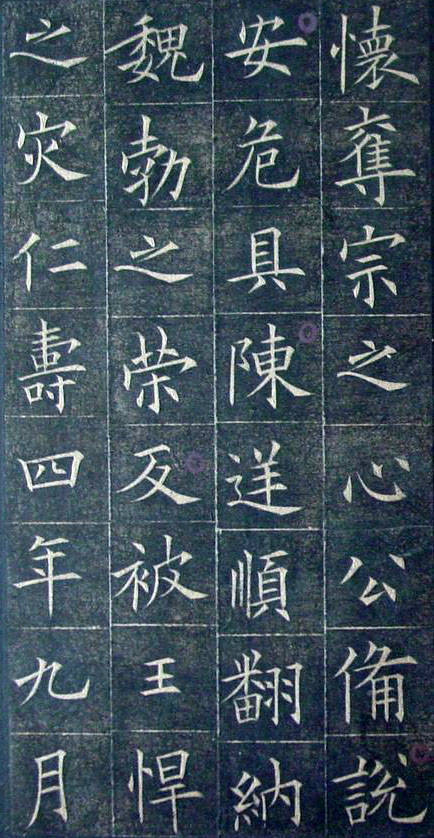 懷奪宗之心公備說
安危具陳逆順翻納
魏勃之荣反被王悍
之灾仁壽四年九月